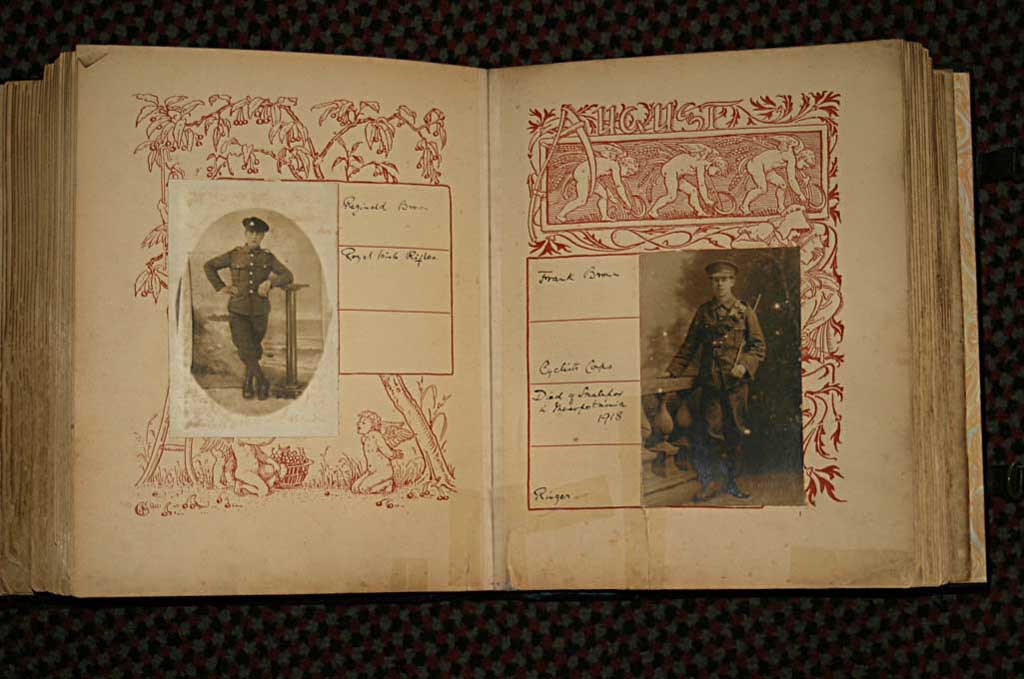 Reginald Brown
Royal Irish Rifles
AUGUST
Frank Brown
Cyclists Corps
Died of Smallpox
in Mesopotamia
1918
Ringer